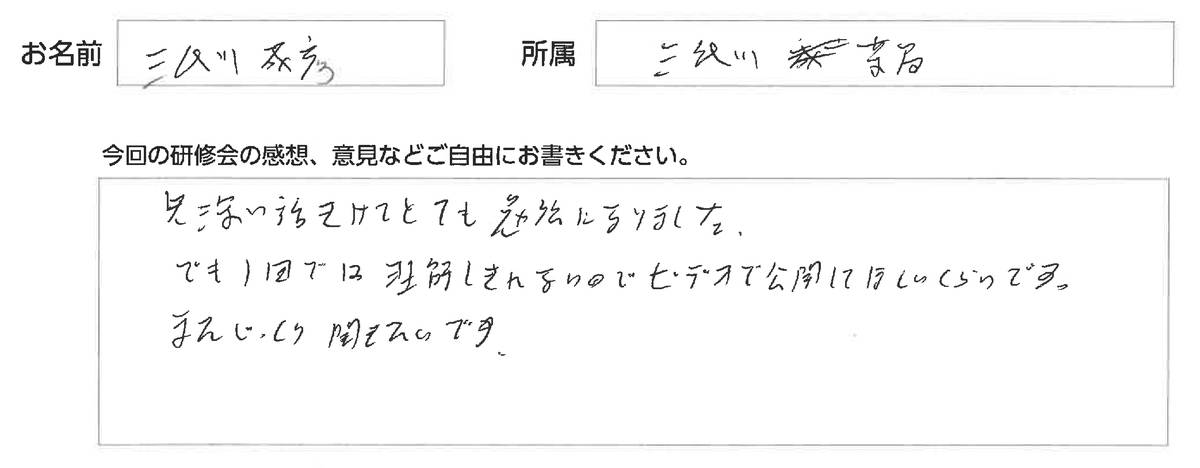 お名前 三代川
所属 三代川 薬局
今回の研修会の感想、意見などご自由にお書きください。
深い話をけてとても勉強になりました。
でも1回では理解しきれないのでビデオで公開してほしいくらいです。
またじっくり聞きたいです。